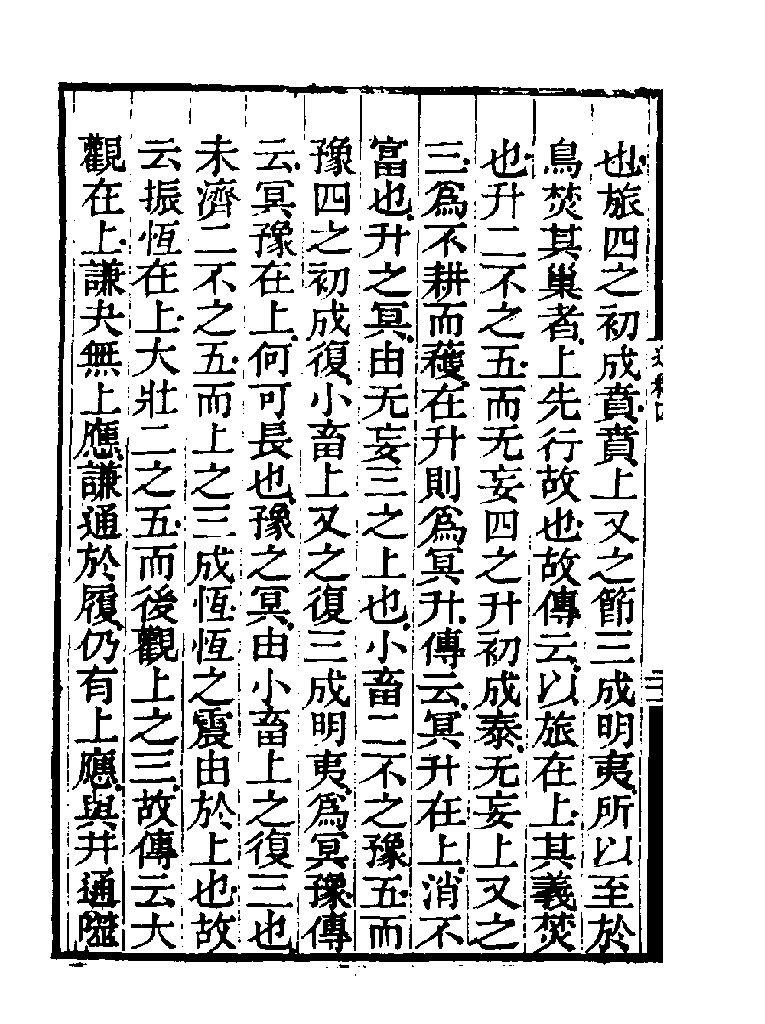 也旅四之初成賁賁上又之節三成明夷所以至於
鳥焚其巢者上先行故也故傳云以旅在上其義焚
也升二不之五而无妄四之升初成泰无妄上又之
三為不耕而穫在升則為冥升傳云冥升在上消不
富也升之冥由无妄三之上也小畜二不之豫五而
豫四之初成復小畜上又之復三成明夷為冥豫傳
云冥豫在上何可長也豫之冥由小畜上之復三也
未濟二不之五而上之三成恆恆之震由於上也故
云振恆在上大壯二之五而後觀上之三故傳云大
觀在上謙夬無上應謙通於履仍有上應與井通隘